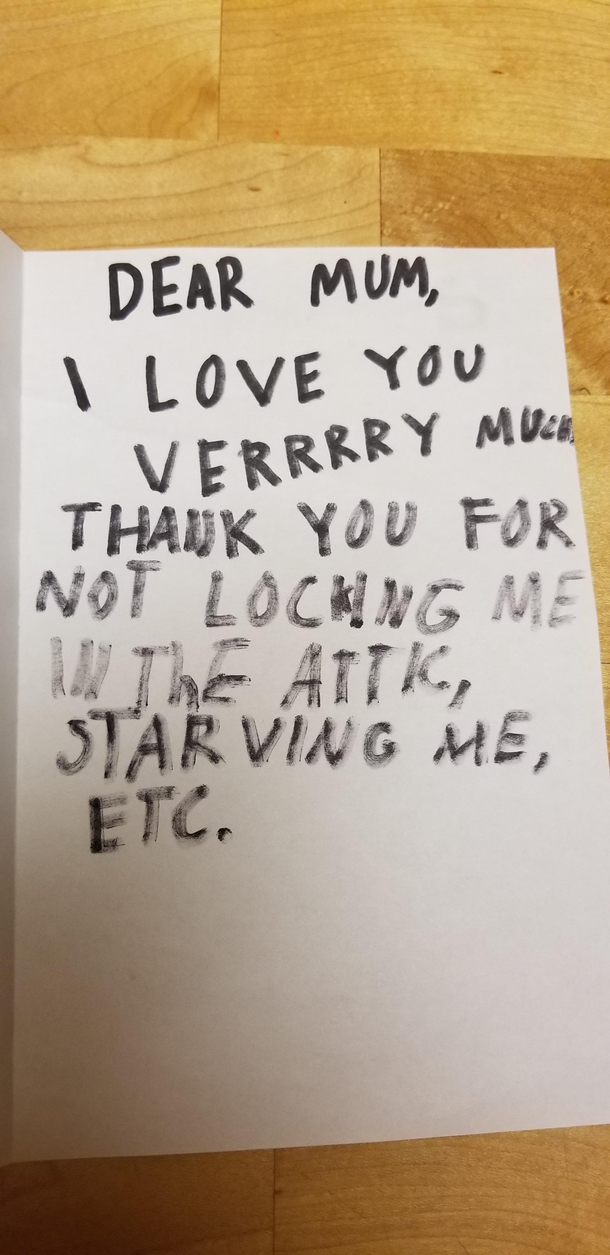 DEAR MUM,
I LOVE YOU
VERRRRY MUCH
THANK YOU FOR
NOT LOCKING ME
IN THE ATTIC,
STARVING ME,
ETC.